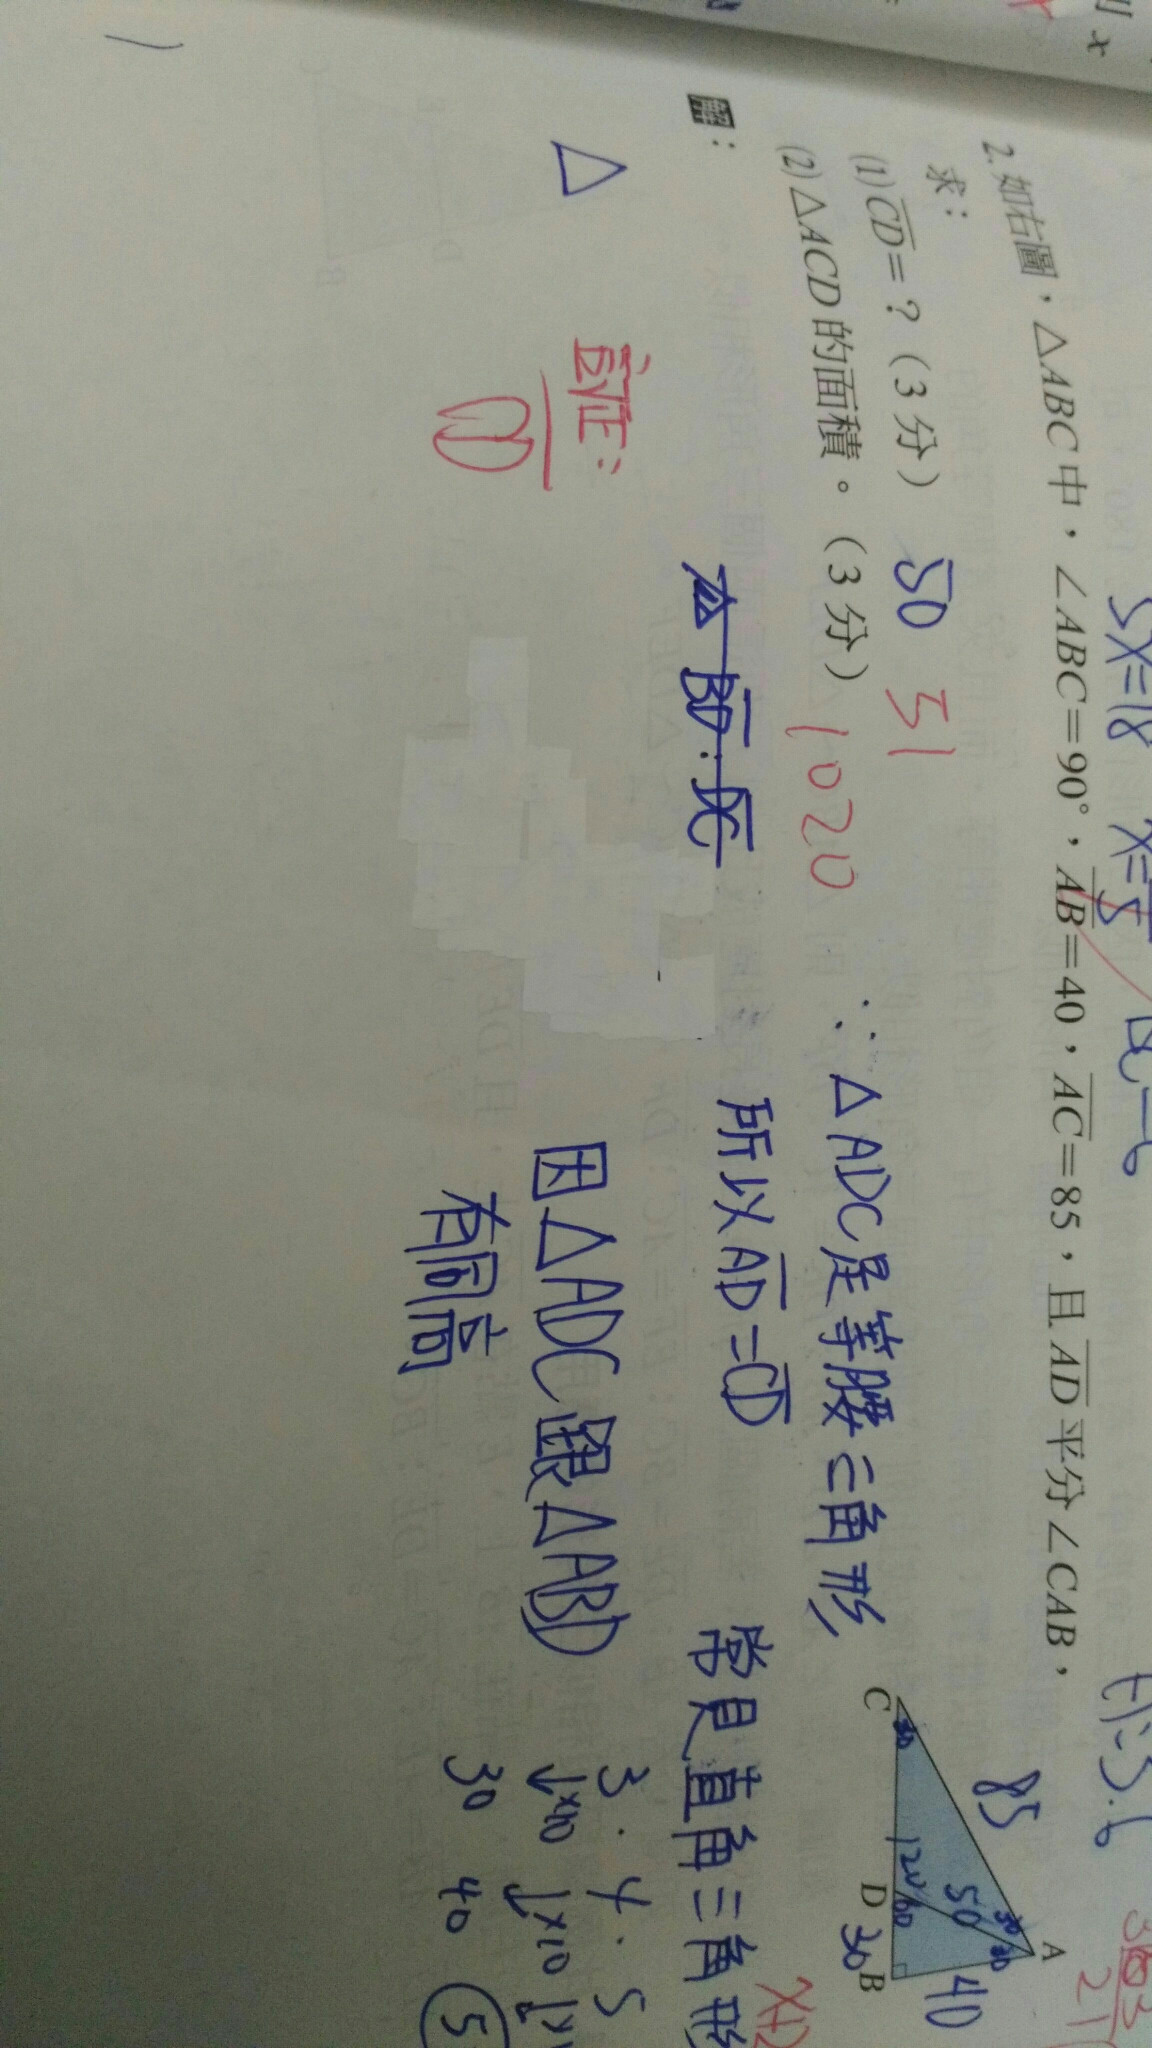 2. 如右圖，△ABC中，∠ABC=90°，AB=40，AC=85，且AD平分∠CAB，
求：
(1) CD=？（3分） 50 51
(2) △ACD的面積。（3分） 1020
解：
BD:DC
∵△ADC是等腰三角形
所以AD=CD
因△ADC跟△ABD
有同高
常見直角三角形
3 . 4 . 5
↓×10 ↓×10
30 40 5
△
証：
(1)
C
D
B
A
85
50
40
30
30
30
30
120
60
5x=18